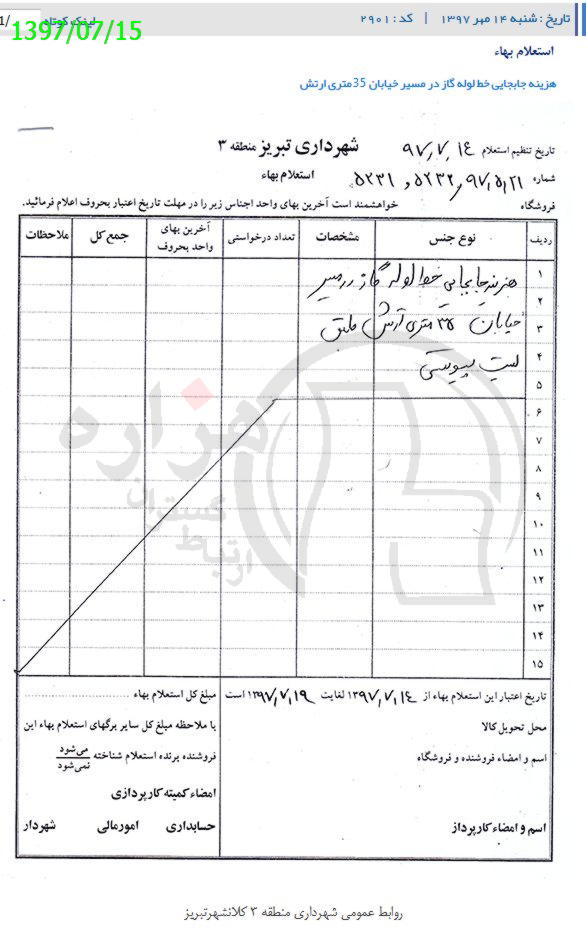 تاریخ : شنبه ۱۴ مهر ۱۳۹۷ | کد : ۲۹۰۱
لینک کوتاه
1397/07/15
استعلام بهاء
هزینه جابجایی خط لوله گاز در مسیر خیابان 35متری ارتش
تاریخ تنظیم استعلام ۹۷٫۷٫۱۴
شهرداری تبریز منطقه ۳
شماره ۹۷٫۵٫۲۱ و ۵۲۳۲ و ۵۲۳۱
استعلام بهاء
فروشگاه خواهشمند است آخرین بهای واحد اجناس زیر را در مهلت تاریخ اعتبار بحروف اعلام فرمائید.
ردیف نوع جنس مشخصات تعداد درخواستی آخرین بهای واحد بحروف جمع کل ملاحظات
۱ هزینه جابجایی خط لوله گاز در مسیر
۲
۳ خیابان ۳۵ متری ارتش طبق
۴ لیست پیوستی
۵
۶
۷
۸
۹
۱۰
۱۱
۱۲
۱۳
۱۴
۱۵
هزاره
گستران
ارتباط
تاریخ اعتبار این استعلام بهاء از ۱۳۹۷٫۷٫۱۴ لغایت ۱۳۹۷٫۷٫۱۹ است
محل تحویل کالا
اسم و امضاء فروشنده و فروشگاه
اسم و امضاء کارپرداز
مبلغ کل استعلام بهاء
با ملاحظه مبلغ کل سایر برگهای استعلام بهاء این
فروشنده برنده استعلام شناخته می‌شود
نمی‌شود
امضاء کمیته کارپردازی
حسابداری امورمالی شهردار
روابط عمومی شهرداری منطقه ۳ کلانشهرتبریز